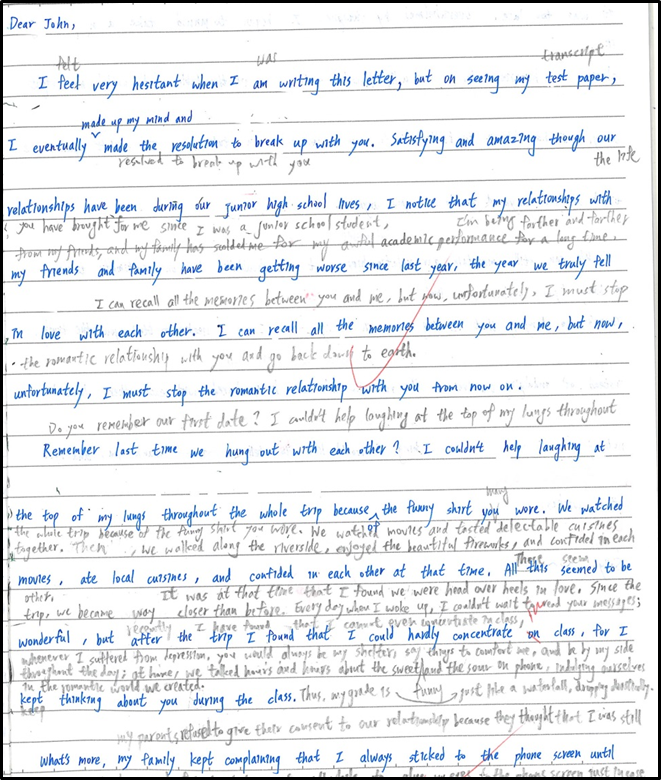 Dear John,
felt was transcript
I feel very hesitant when I am writing this letter, but on seeing my test paper,
made up my mind and
I eventually made the resolution to break up with you. Satisfying and amazing though our
resolved to break up with you the life
relationships have been during our junior high school lives, I notice that my relationships with
you have brought for me since I was a junior school student, I'm being farther and farther
from my friends, and my family has scolded me for my awful academic performance for a long time.
my friends and family have been getting worse since last year, the year we truly fell
I can recall all the memories between you and me, but now, unfortunately, I must stop
in love with each other. I can recall all the memories between you and me, but now,
the romantic relationship with you and go back down to earth.
unfortunately, I must stop the romantic relationship with you from now on.
Do you remember our first date? I couldn't help laughing at the top of my lungs throughout
Remember last time we hung out with each other? I couldn't help laughing at
the top of my lungs throughout the whole trip because of the funny shirt you wore. We watched
the whole trip because of the funny shirt you wore. We watched movies and tasted delectable cuisines
together. Then, we walked along the riverside, enjoyed the beautiful fireworks, and confided in each
These seem
movies, ate local cuisines, and confided in each other at that time. All this seemed to be
other. It was at that time that I found we were head over heels in love. Since the
trip, we became way closer than before. Every day when I woke up, I couldn't wait to read your messages;
recently I have found that I cannot even concentrate in class,
wonderful, but after the trip I found that I could hardly concentrate on class, for I
whenever I suffered from depression, you would always be my shelter, say things to comfort me, and be by my side
throughout the day; at home, we talked hours and hours about the sweet and the sour on phone, indulging ourselves
in the romantic world we created.
kept thinking about you during the class. Thus, my grade is funny just like a waterfall, dropping drastically.
keep
my parents refused to give their consent to our relationship because they thought that I was still
What's more, my family kept complaining that I always sticked to the phone screen until